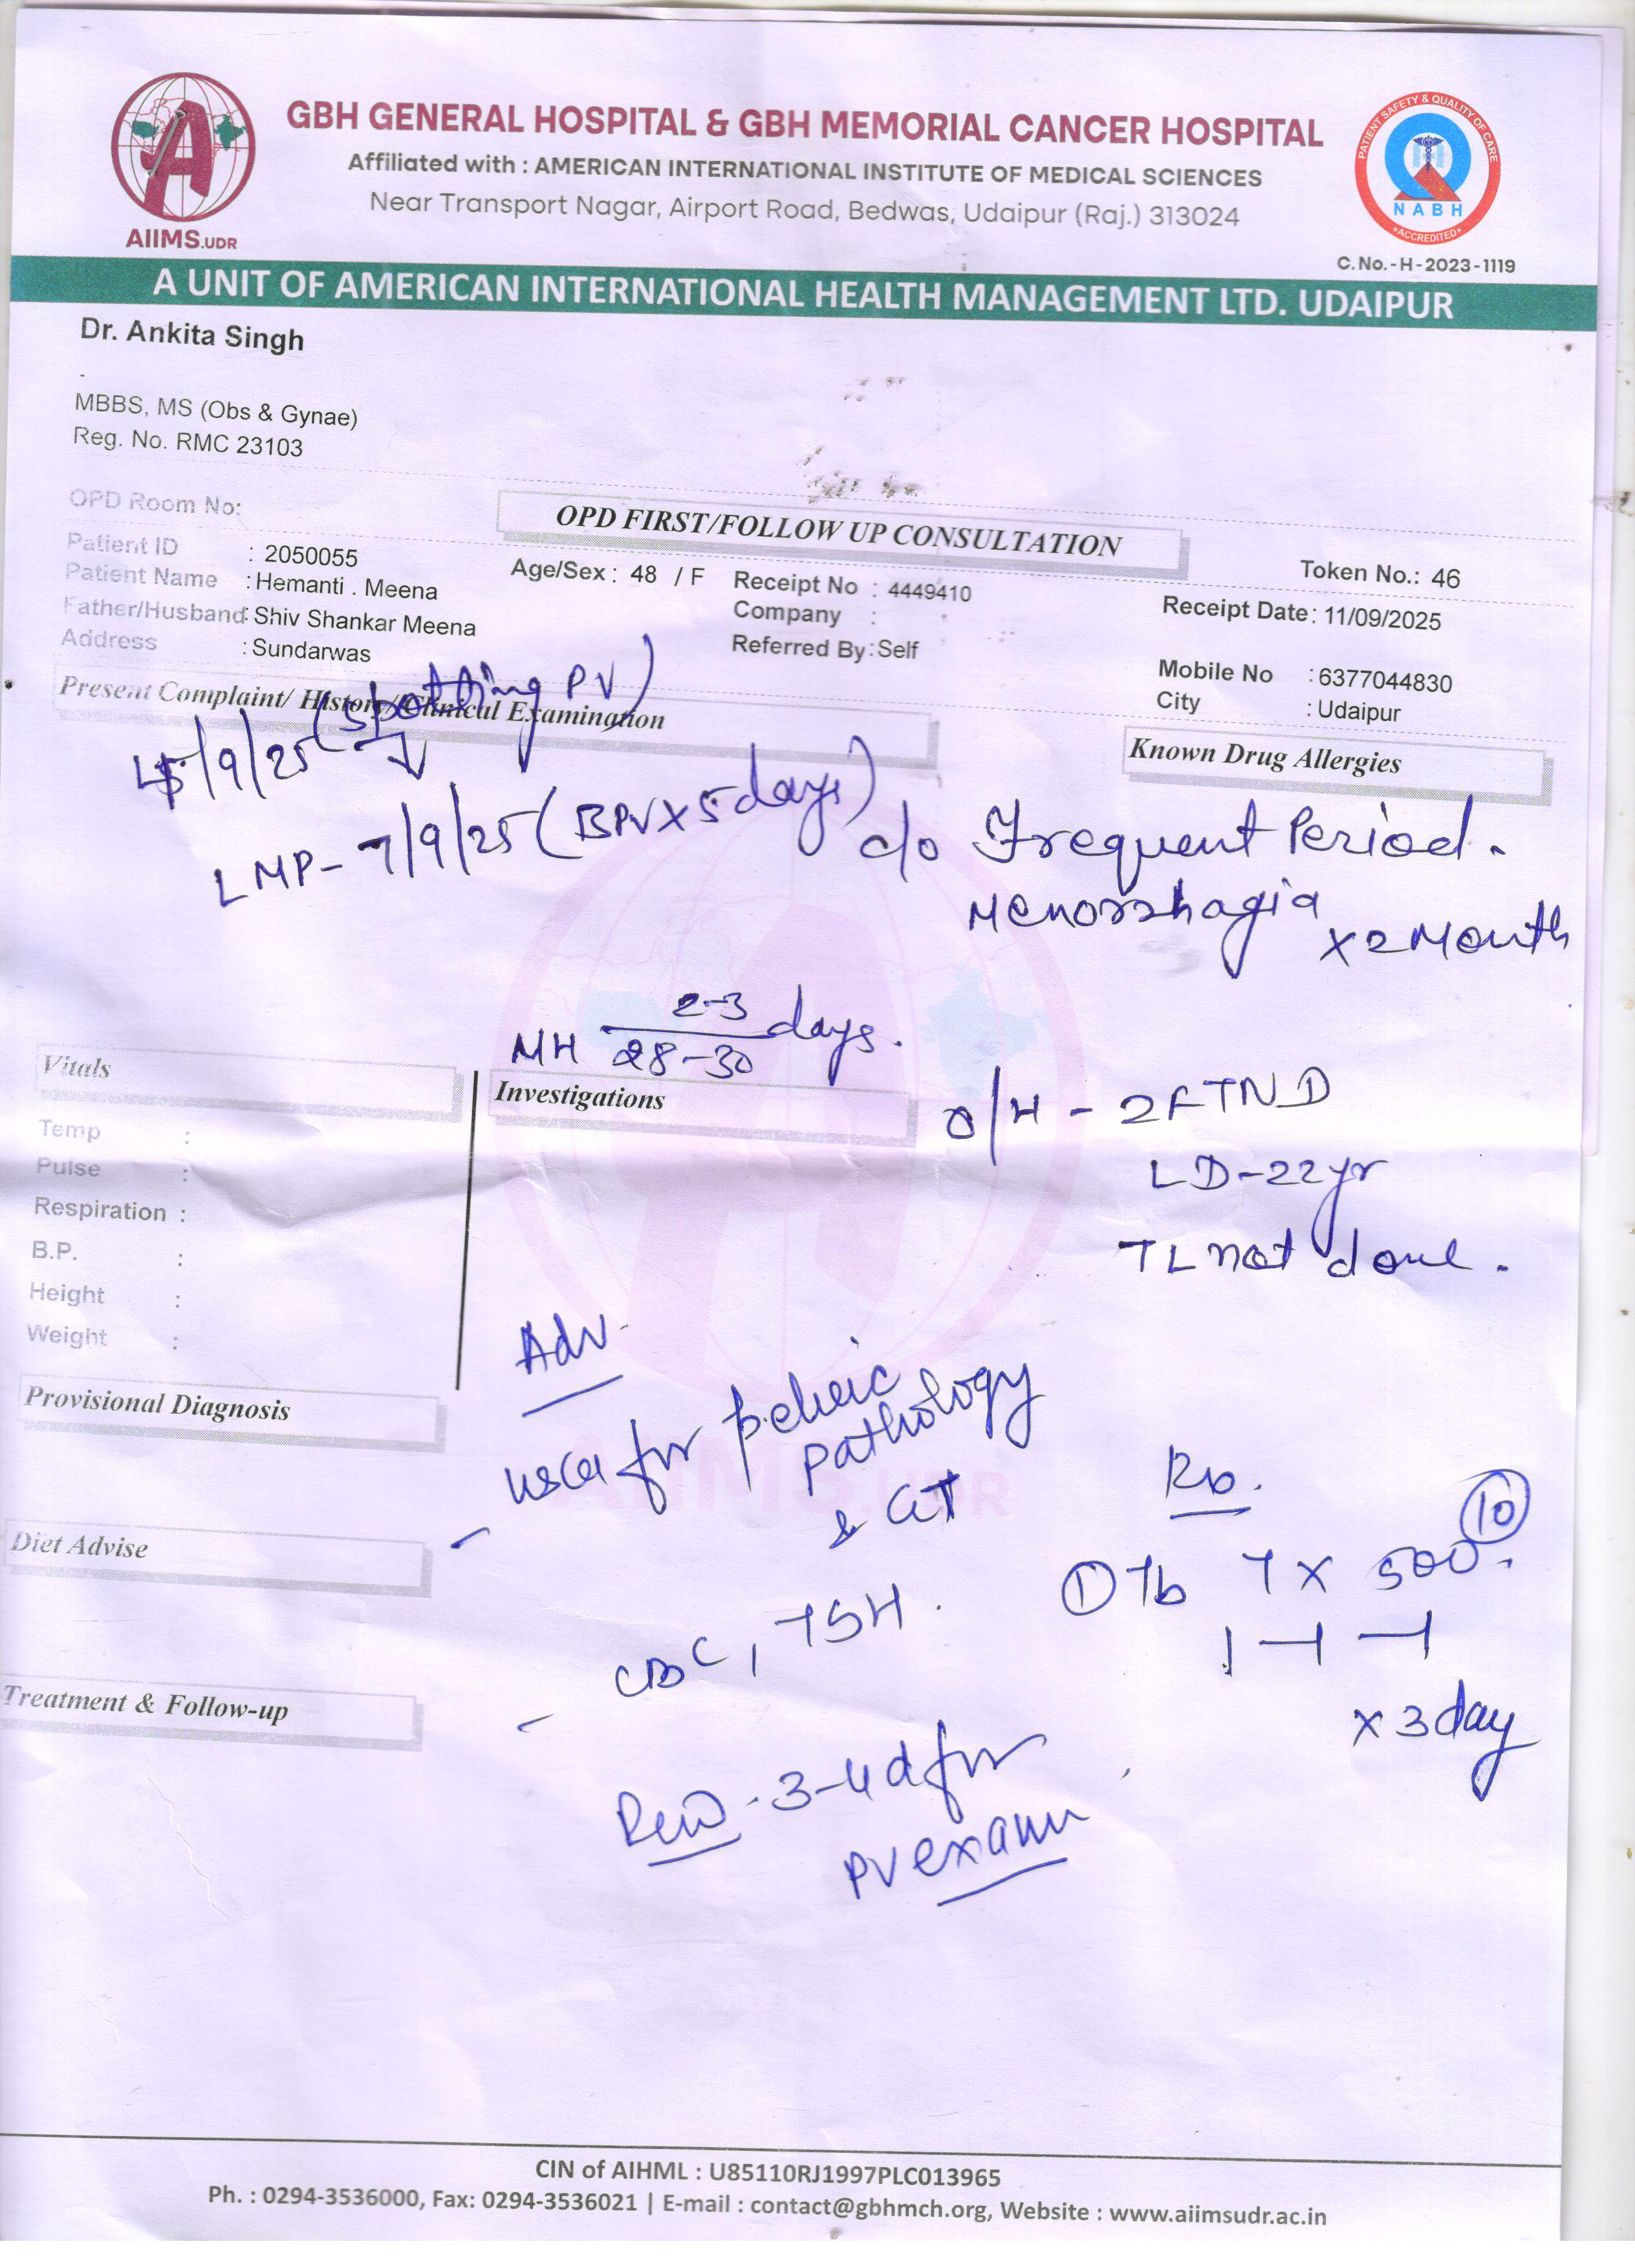 GBH GENERAL HOSPITAL & GBH MEMORIAL CANCER HOSPITAL
Affiliated with : AMERICAN INTERNATIONAL INSTITUTE OF MEDICAL SCIENCES
Near Transport Nagar, Airport Road, Bedwas, Udaipur (Raj.) 313024
AIIMS.UDR
PATIENT SAFETY & QUALITY OF CARE
NABH
ACCREDITED
C.No.-H-2023-1119
A UNIT OF AMERICAN INTERNATIONAL HEALTH MANAGEMENT LTD. UDAIPUR
Dr. Ankita Singh
MBBS, MS (Obs & Gynae)
Reg. No. RMC 23103
OPD Room No:
OPD FIRST/FOLLOW UP CONSULTATION
Token No.: 46
Patient ID : 2050055
Patient Name : Hemanti . Meena
Age/Sex : 48 / F
Receipt No : 4449410
Receipt Date : 11/09/2025
Father/Husband : Shiv Shankar Meena
Company :
Address : Sundarwas
Referred By : Self
Mobile No : 6377044830
City : Udaipur
Present Complaint/ History/Clinical Examination
Known Drug Allergies
/9/25 (spotting PV)
LMP- 7/9/25 (BPV X 5 days)
c/o Frequent Period.
Menorrhagia
x 2 Month
MH 2-3
28-30 days.
Vitals
Investigations
O/H - 2FTND
LD-22yr
TL not done.
Temp :
Pulse :
Respiration :
B.P. :
Height :
Weight :
Adv.
Provisional Diagnosis
for pelvic
pathology
& ET
Rx.
10
① Tb TX 500.
1-1-1
x 3 day
Diet Advise
CBC, TSH.
Treatment & Follow-up
3-4 d for
PV exam
AIIMS.UDR
CIN of AIHML : U85110RJ1997PLC013965
Ph. : 0294-3536000, Fax: 0294-3536021 | E-mail : contact@gbhmch.org, Website : www.aiimsudr.ac.in